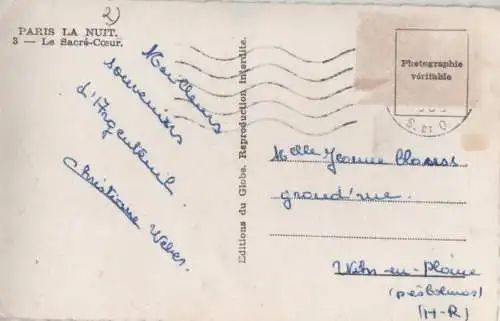 2)
PARIS LA NUIT.
3 — Le Sacré-Cœur.
Meilleurs
souvenirs
d'Argenteuil
Christiane Weber.
Editions du Globe. Reproduction Interdite.
Photographie
véritable
S. ET O.
Melle Jeanne
grand'rue.
en-Plaine
(H-R)